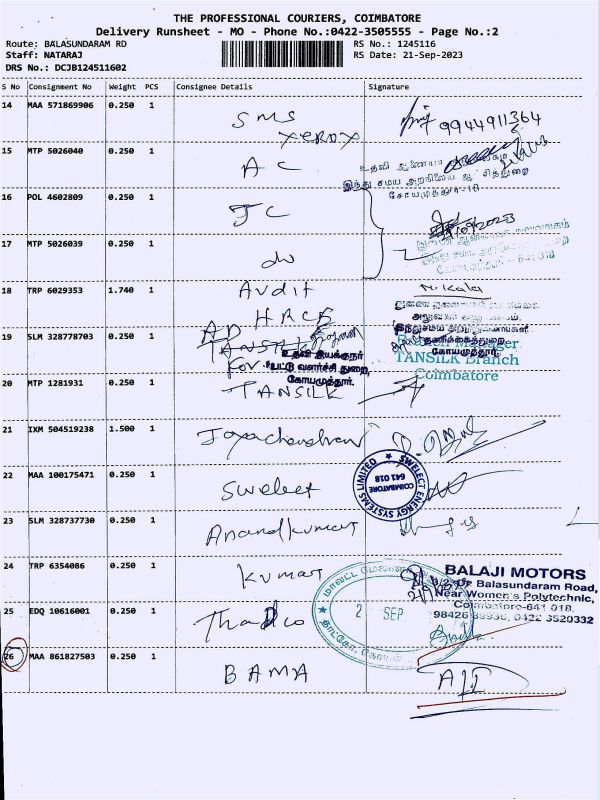 THE PROFESSIONAL COURIERS, COIMBATORE
Delivery Runsheet - MO - Phone No.:0422-3505555 - Page No.:2
Route: BALASUNDARAM RD
RS No.: 1245116
Staff: NATARAJ
RS Date: 21-Sep-2023
DRS No.: DCJB124511602
S No Consignment No Weight PCS Consignee Details Signature
14 MAA 571869906 0.250 1 SMS XEROX 9944911364
15 MTP 5026040 0.250 1 AC
உதவி ஆணையர்
இந்து சமய அறநிலைய ஆட்சித்துறை
கோயமுத்தூர்-18
16 POL 4602809 0.250 1 JC
17 MTP 5026039 0.250 1
18 TRP 6029353 1.740 1 Audit
HRCE
19 SLM 328778703 0.250 1 AD
TANSILK
for
உதவி இயக்குநர்
பட்டு வளர்ச்சி துறை,
கோயமுத்தூர்.
Manager
TANSILK Branch
Coimbatore
20 MTP 1281931 0.250 1 TANSILK
21 IXM 504519238 1.500 1 Jayachandran
22 MAA 100175471 0.250 1 Swelect
SWELECT ENERGY SYSTEMS LIMITED
COIMBATORE
641 018
23 SLM 328737730 0.250 1 Anandkumar
24 TRP 6354086 0.250 1 Kumar
BALAJI MOTORS
Balasundaram Road,
Near Women's Polytechnic,
Coimbatore-641 018.
0422 3520332
25 EDQ 10616001 0.250 1 Thadco
2 SEP
26 MAA 861827503 0.250 1 BAMA